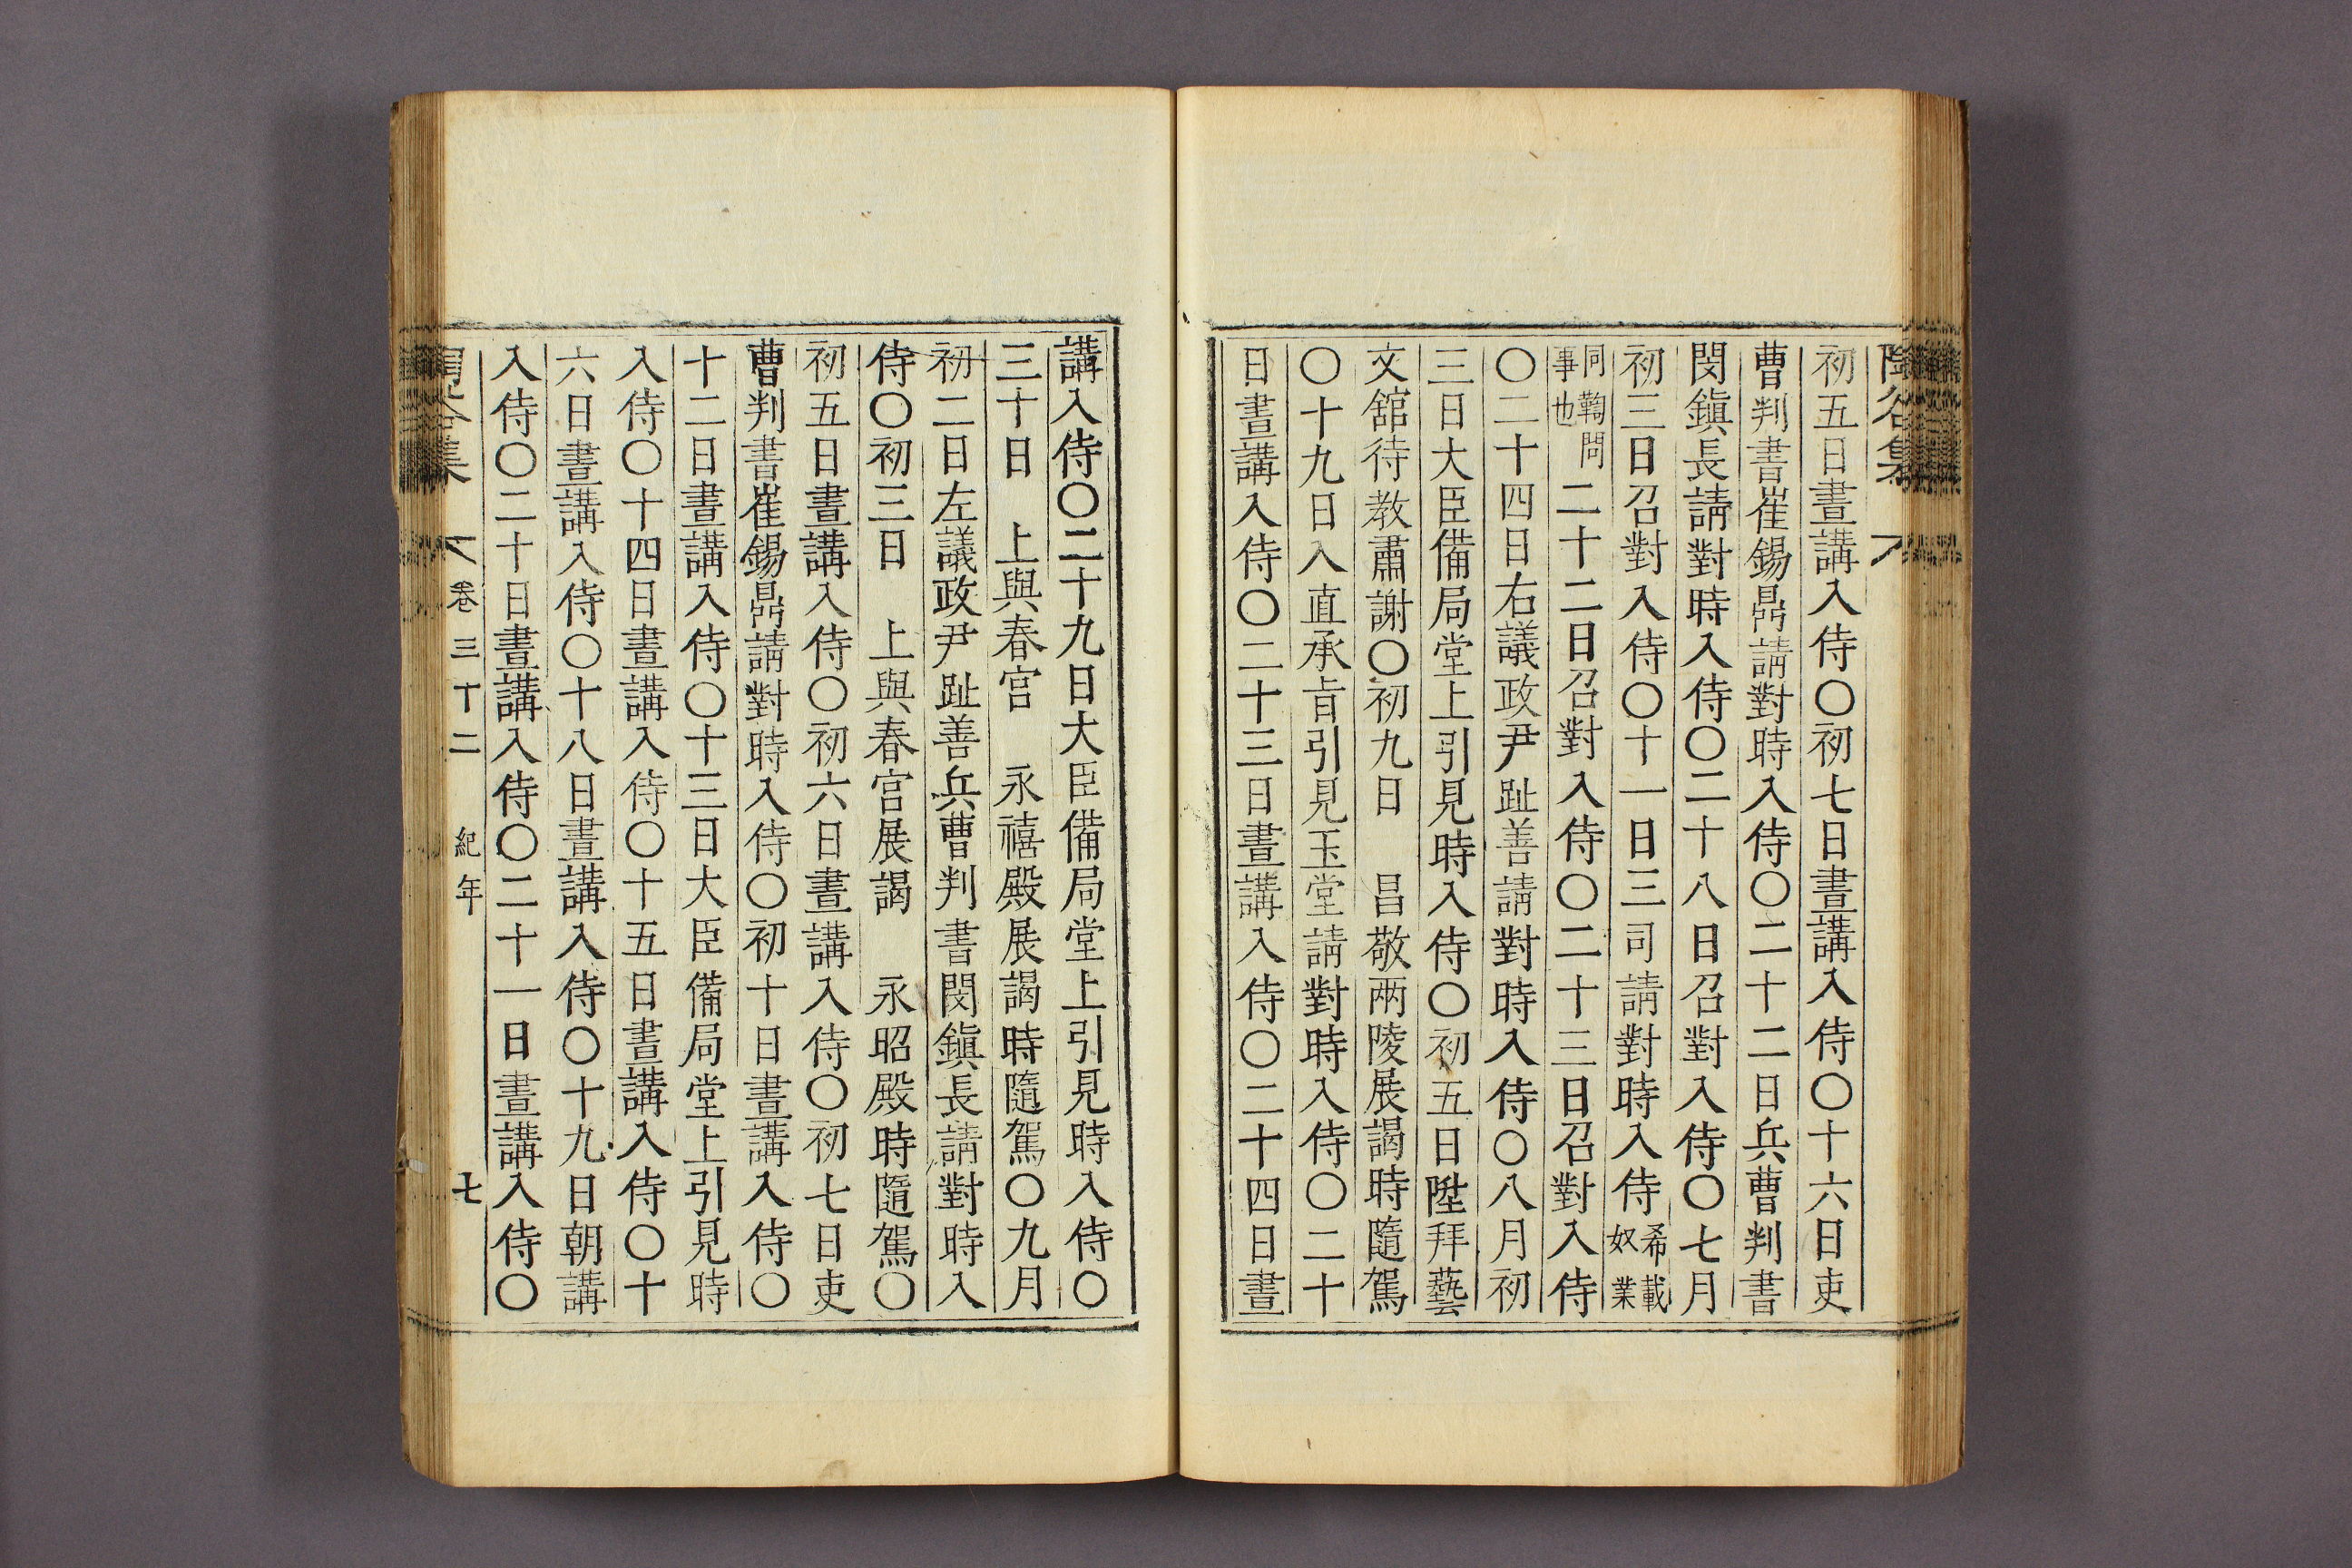 陶谷集
初五日晝講入侍〇初七日晝講入侍〇十六日吏
曹判書崔錫鼎請對時入侍〇二十二日兵曹判書
閔鎭長請對時入侍〇二十八日召對入侍〇七月
初三日召對入侍〇十一日三司請對時入侍希載奴業
同鞫問事也二十二日召對入侍〇二十三日召對入侍
〇二十四日右議政尹趾善請對時入侍〇八月初
三日大臣備局堂上引見時入侍〇初五日陞拜藝
文舘待敎肅謝〇初九日 昌敬兩陵展謁時隨駕
〇十九日入直承㫖引見玉堂請對時入侍〇二十
日晝講入侍〇二十三日晝講入侍〇二十四日晝
講入侍〇二十九日大臣備局堂上引見時入侍〇
三十日 上與春宮 永禧殿展謁時隨駕〇九月
初二日左議政尹趾善兵曹判書閔鎭長請對時入
侍〇初三日 上與春宮展謁 永昭殿時隨駕〇
初五日晝講入侍〇初六日晝講入侍〇初七日吏
曹判書崔錫鼎請對時入侍〇初十日晝講入侍〇
十二日晝講入侍〇十三日大臣備局堂上引見時
入侍〇十四日晝講入侍〇十五日晝講入侍〇十
六日晝講入侍〇十八日晝講入侍〇十九日朝講
入侍〇二十日晝講入侍〇二十一日晝講入侍〇
陶谷集 卷三十二 紀年 七